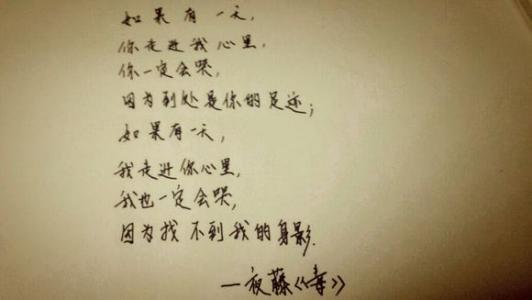 如果有一天,
你走进我心里,
你一定会哭,
因为到处是你的足迹;
如果有一天,
我走进你心里,
我也一定会哭,
因为找不到我的身影.
—夜藤《毒》